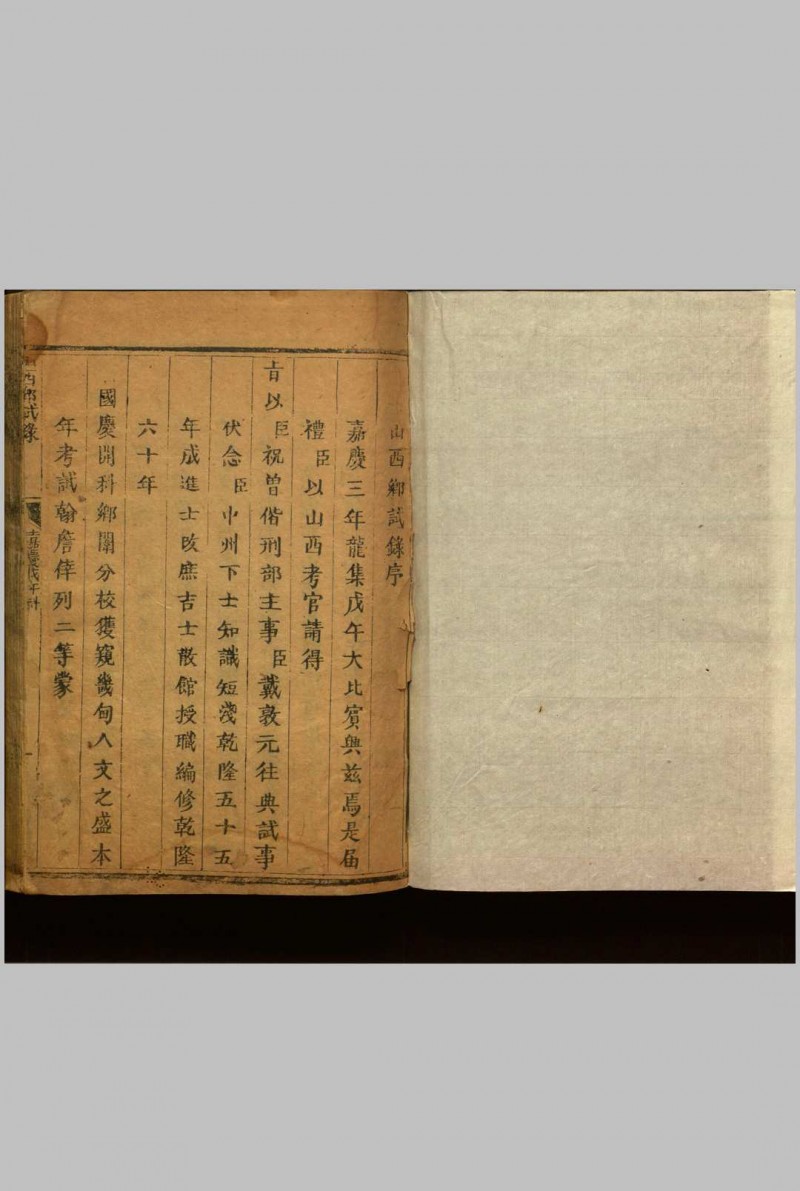 山西鄉試錄序
嘉慶三年龍集戊午大比賓興茲焉是届
禮臣以山西考官請得
旨以臣祝曾偕刑部主事臣戴敦元往典試事
伏念臣中州下士知識短淺乾隆五十五
年成進士改庶吉士散館授職編修乾隆
六十年
國慶開科鄉闈分校獲窺畿甸人文之盛本
年考試翰詹倖列二等蒙
西鄉試錄 一 嘉慶戊午科